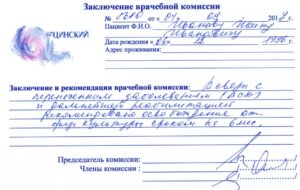 Заключение врачебной комиссии
№ от 01 09 2017 г.
ЦИНСКИЙ
Пациент Ф.И.О. Иванову Ивану
Ивановичу
Дата рождения 06 12 1996 г.
Адрес проживания:
Заключение и рекомендации врачебной комиссии: В связи с
перенесенным заболеванием
и дальнейшей реабилитацией
рекомендовано освобождение от
физ культуры сроком на
Председатель комиссии:
Члены комиссии: